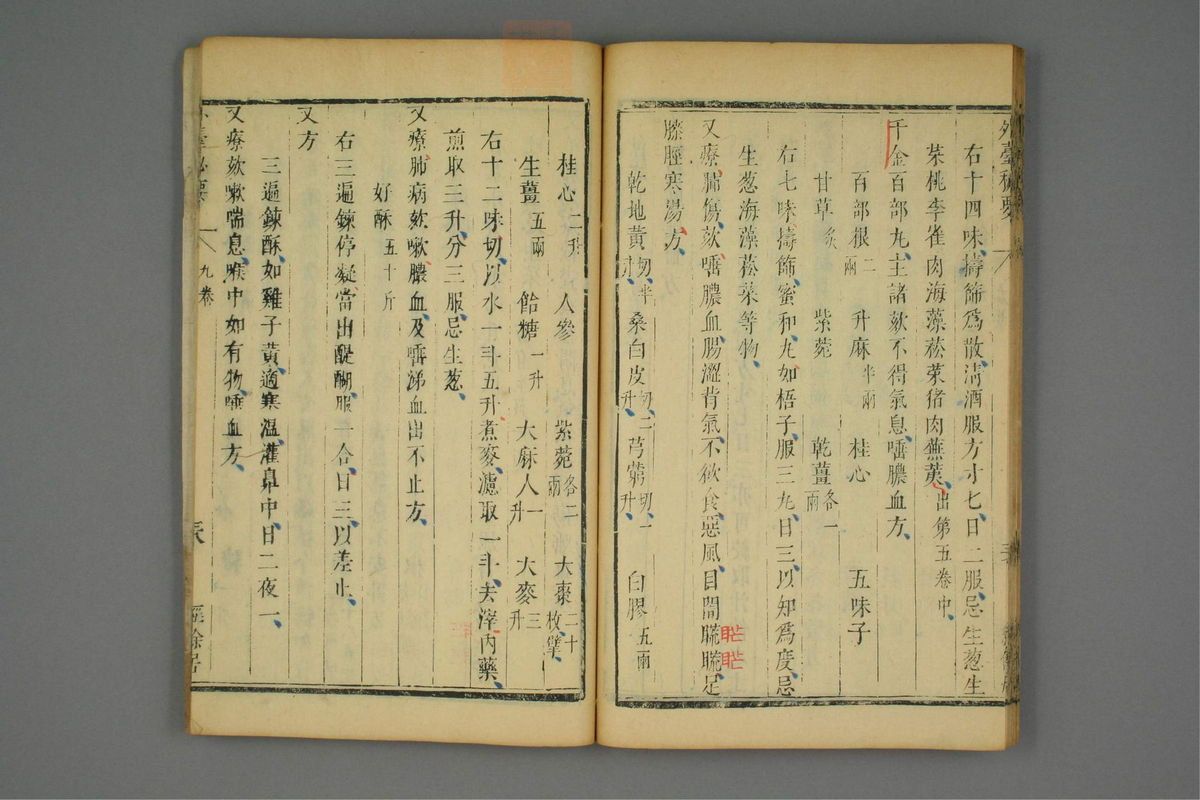 外臺秘要
右十四味擣篩爲散淸酒服方寸匕日二服忌生葱生
菜桃李雀肉海藻菘菜猪肉蕪荑出第五卷中
千金百部丸主諸欬不得氣息唾膿血方
百部根二兩 升麻半兩 桂心 五味子
甘草炙 紫菀 乾薑各一兩
右七味擣篩蜜和丸如梧子服三丸日三以知爲度忌
生葱海藻菘菜等物
又療肺傷欬唾膿血腸澀背氣不欲食惡風目䀮䀮足
膝脛寒湯方
䀮䀮
乾地黃切半升 桑白皮切二升 芎藭切一升 白膠五兩
桂心二升 人參 紫菀各二兩 大棗二十枚擘
生薑五兩 飴糖一升 大麻人一升 大麥三升
右十二味切以水一斗五升煮麥濾取一斗去滓內藥
煎取三升分三服忌生葱
又療肺病欬嗽膿血及唾涕血出不止方
好酥五十斤
右三遍鍊停凝當出醍醐服一合日三以差止
又方
三遍鍊酥如雞子黃適寒温灌鼻中日二夜一
又療欬嗽喘息喉中如有物唾血方
九卷
經餘居